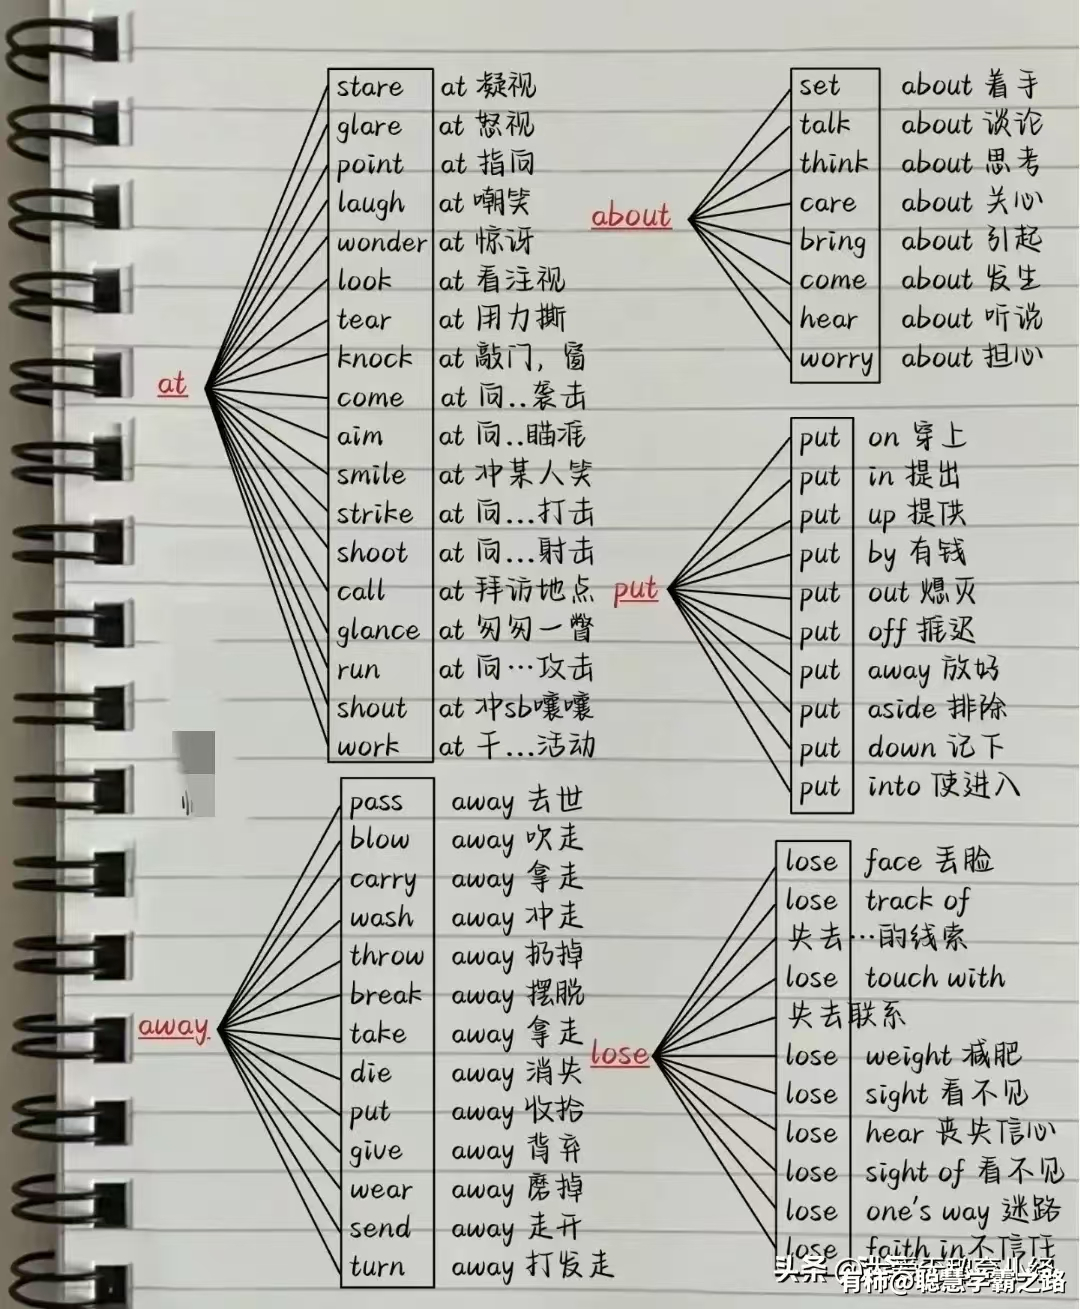 at
stare at 凝视
glare at 怒视
point at 指向
laugh at 嘲笑
wonder at 惊讶
look at 看注视
tear at 用力撕
knock at 敲门，窗
come at 向..袭击
aim at 向..瞄准
smile at 冲某人笑
strike at 向...打击
shoot at 向...射击
call at 拜访地点
glance at 匆匆一瞥
run at 向…攻击
shout at 冲sb嚷嚷
work at 干...活动
away
pass away 去世
blow away 吹走
carry away 拿走
wash away 冲走
throw away 扔掉
break away 摆脱
take away 拿走
die away 消失
put away 收拾
give away 背弃
wear away 磨掉
send away 走开
turn away 打发走
about
set about 着手
talk about 谈论
think about 思考
care about 关心
bring about 引起
come about 发生
hear about 听说
worry about 担心
put
put on 穿上
put in 提出
put up 提供
put by 有钱
put out 熄灭
put off 推迟
put away 放好
put aside 排除
put down 记下
put into 使进入
lose
lose face 丢脸
lose track of
失去…的线索
lose touch with
失去联系
lose weight 减肥
lose sight 看不见
lose hear 丧失信心
lose sight of 看不见
lose one's way 迷路
lose faith in 不信任
头条@
有柿@聪慧学霸之路